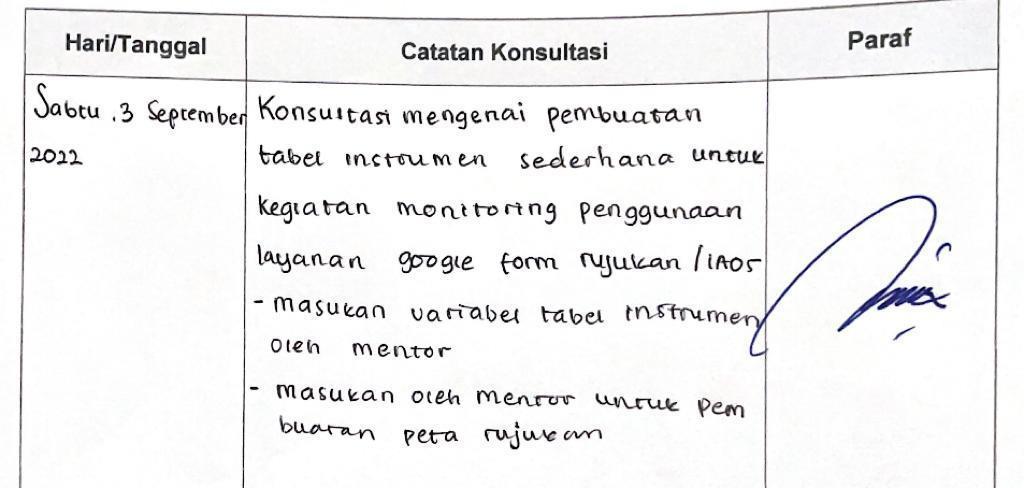 Hari/Tanggal
Catatan Konsultasi
Paraf
Sabtu, 3 September
2022
Konsultasi mengenai pembuatan
tabel instrumen sederhana untuk
kegiatan monitoring penggunaan
layanan google form rujukan /
- masukan variabel tabel instrumen
oleh mentor
- masukan oleh mentor untuk pem
buatan peta rujukan